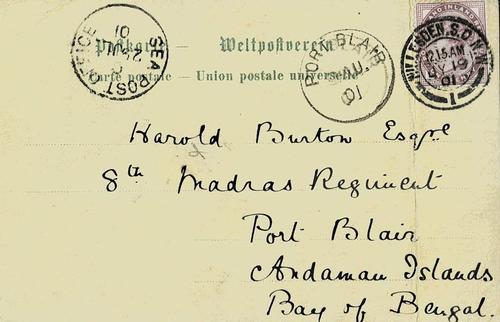 Postkarte — Weltpostverein
Carte postale — Union postale universelle
SEA POST OFFICE
01
PORT BLAIR
AU.
01
WILLESDEN.S.O. N.W
12.15.AM
19
01
1
AND INLAND
Harold Burton Esqre
8th Madras Regiment
Port Blair
Andaman Islands
Bay of Bengal.